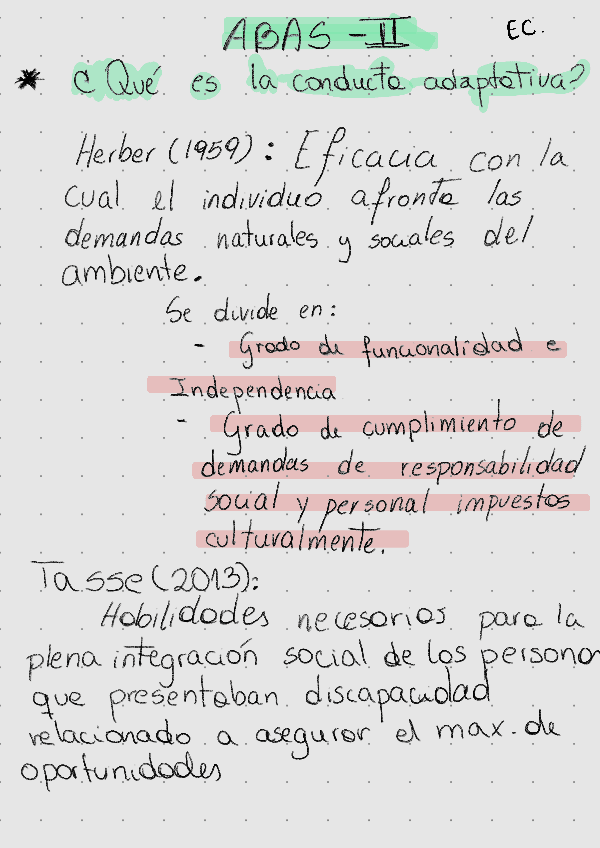 ABAS - II
EC.
* ¿Qué es la conducta adaptativa?
Herber (1959): Eficacia con la
cual el individuo afronta las
demandas naturales y sociales del
ambiente.
Se divide en:
- Grado de funcionalidad e
Independencia
- Grado de cumplimiento de
demandas de responsabilidad
social y personal impuestos
culturalmente.
Tasse (2013):
Habilidades necesarias para la
plena integración social de las personas
que presentaban discapacidad
relacionado a asegurar el max. de
oportunidades